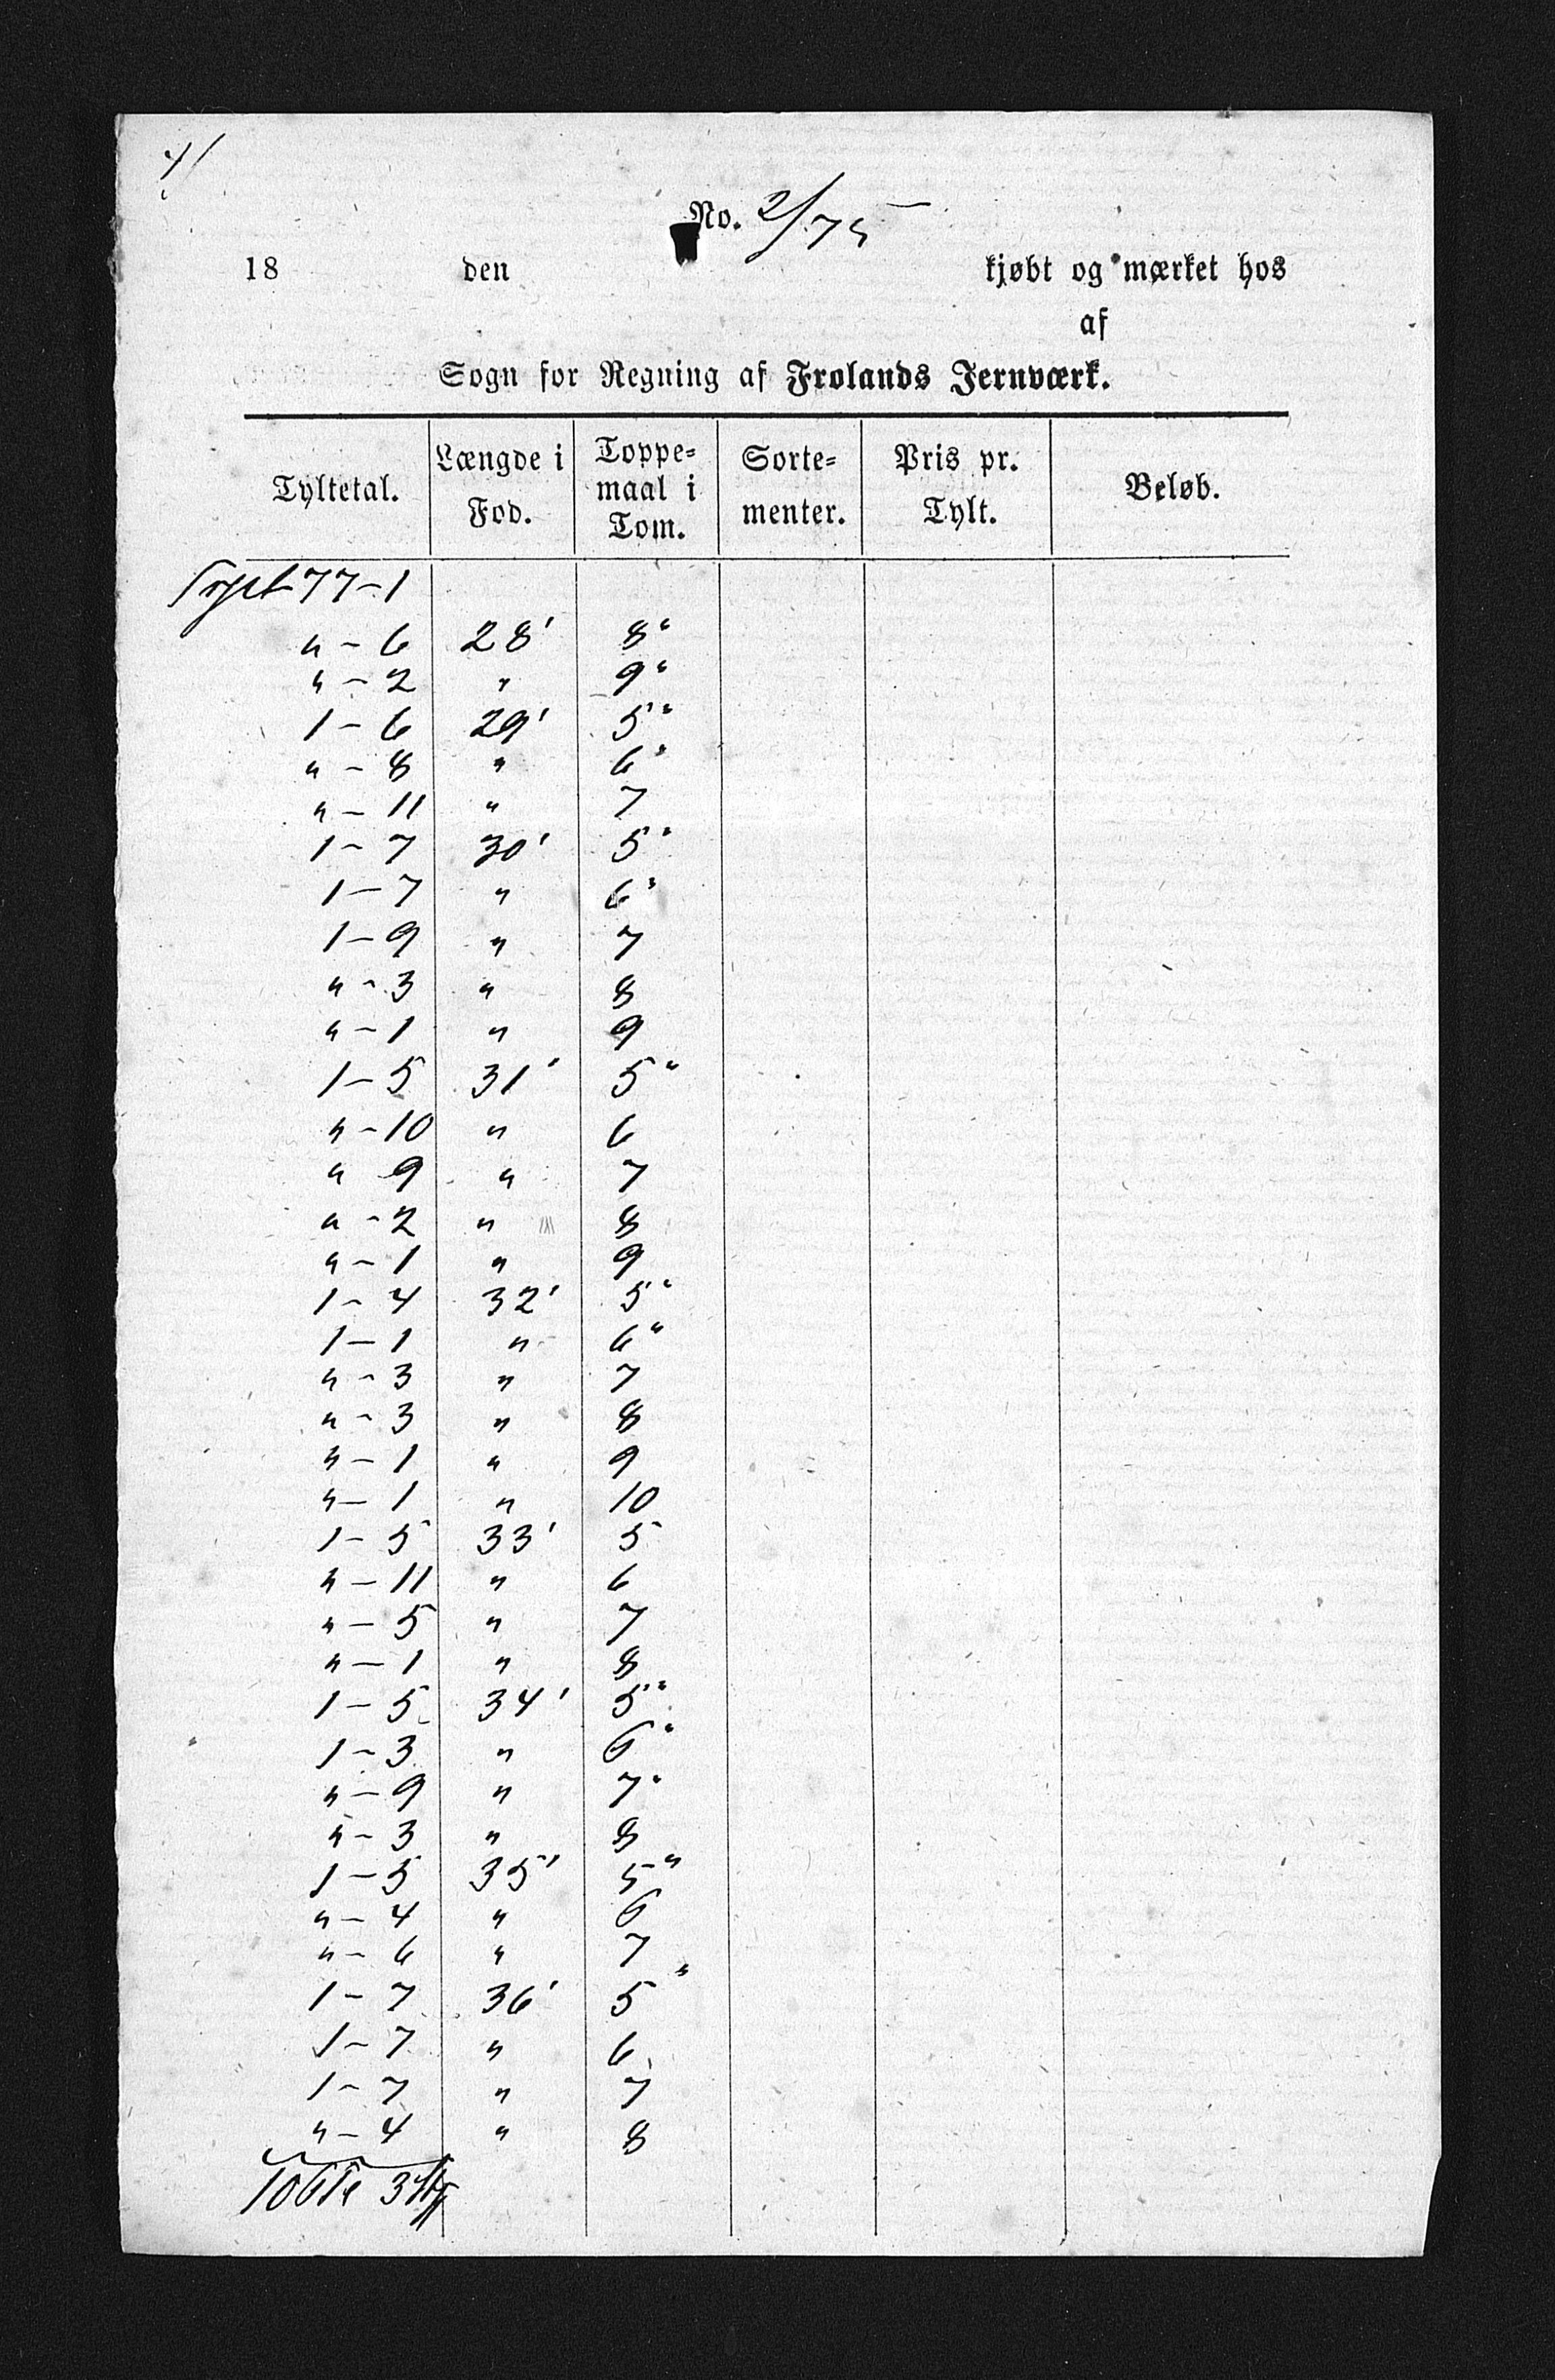 4/
No. 2/75
18 den kjøbt og mærket hos
af
Sogn for Regning af Frolands Jernværk.
Tyltetal. Længde i Fod. Toppe-maal i Tom. Sorte-menter. Pris pr. Tylt. Beløb.
77-1
" - 6 28' 8"
" - 2 " 9"
1 - 6 29' 5"
" - 8 " 6"
" - 11 " 7
1 - 7 30' 5"
1 - 7 " 6"
1 - 9 " 7
" - 3 " 8
" - 1 " 9
1 - 5 31' 5"
" - 10 " 6
" - 9 " 7
" - 2 " 8
" - 1 " 9
1 - 4 32' 5"
1 - 1 " 6"
" - 3 " 7
" - 3 " 8
" - 1 " 9
" - 1 " 10
1 - 5 33' 5
" - 11 " 6
" - 5 " 7
" - 1 " 8
1 - 5 34' 5"
1 - 3 " 6"
" - 9 " 7"
" - 3 " 8
1 - 5 35' 5"
" - 4 " 6
" - 6 " 7
1 - 7 36' 5"
1 - 7 " 6
1 - 7 " 7
" - 4 " 8
106 3